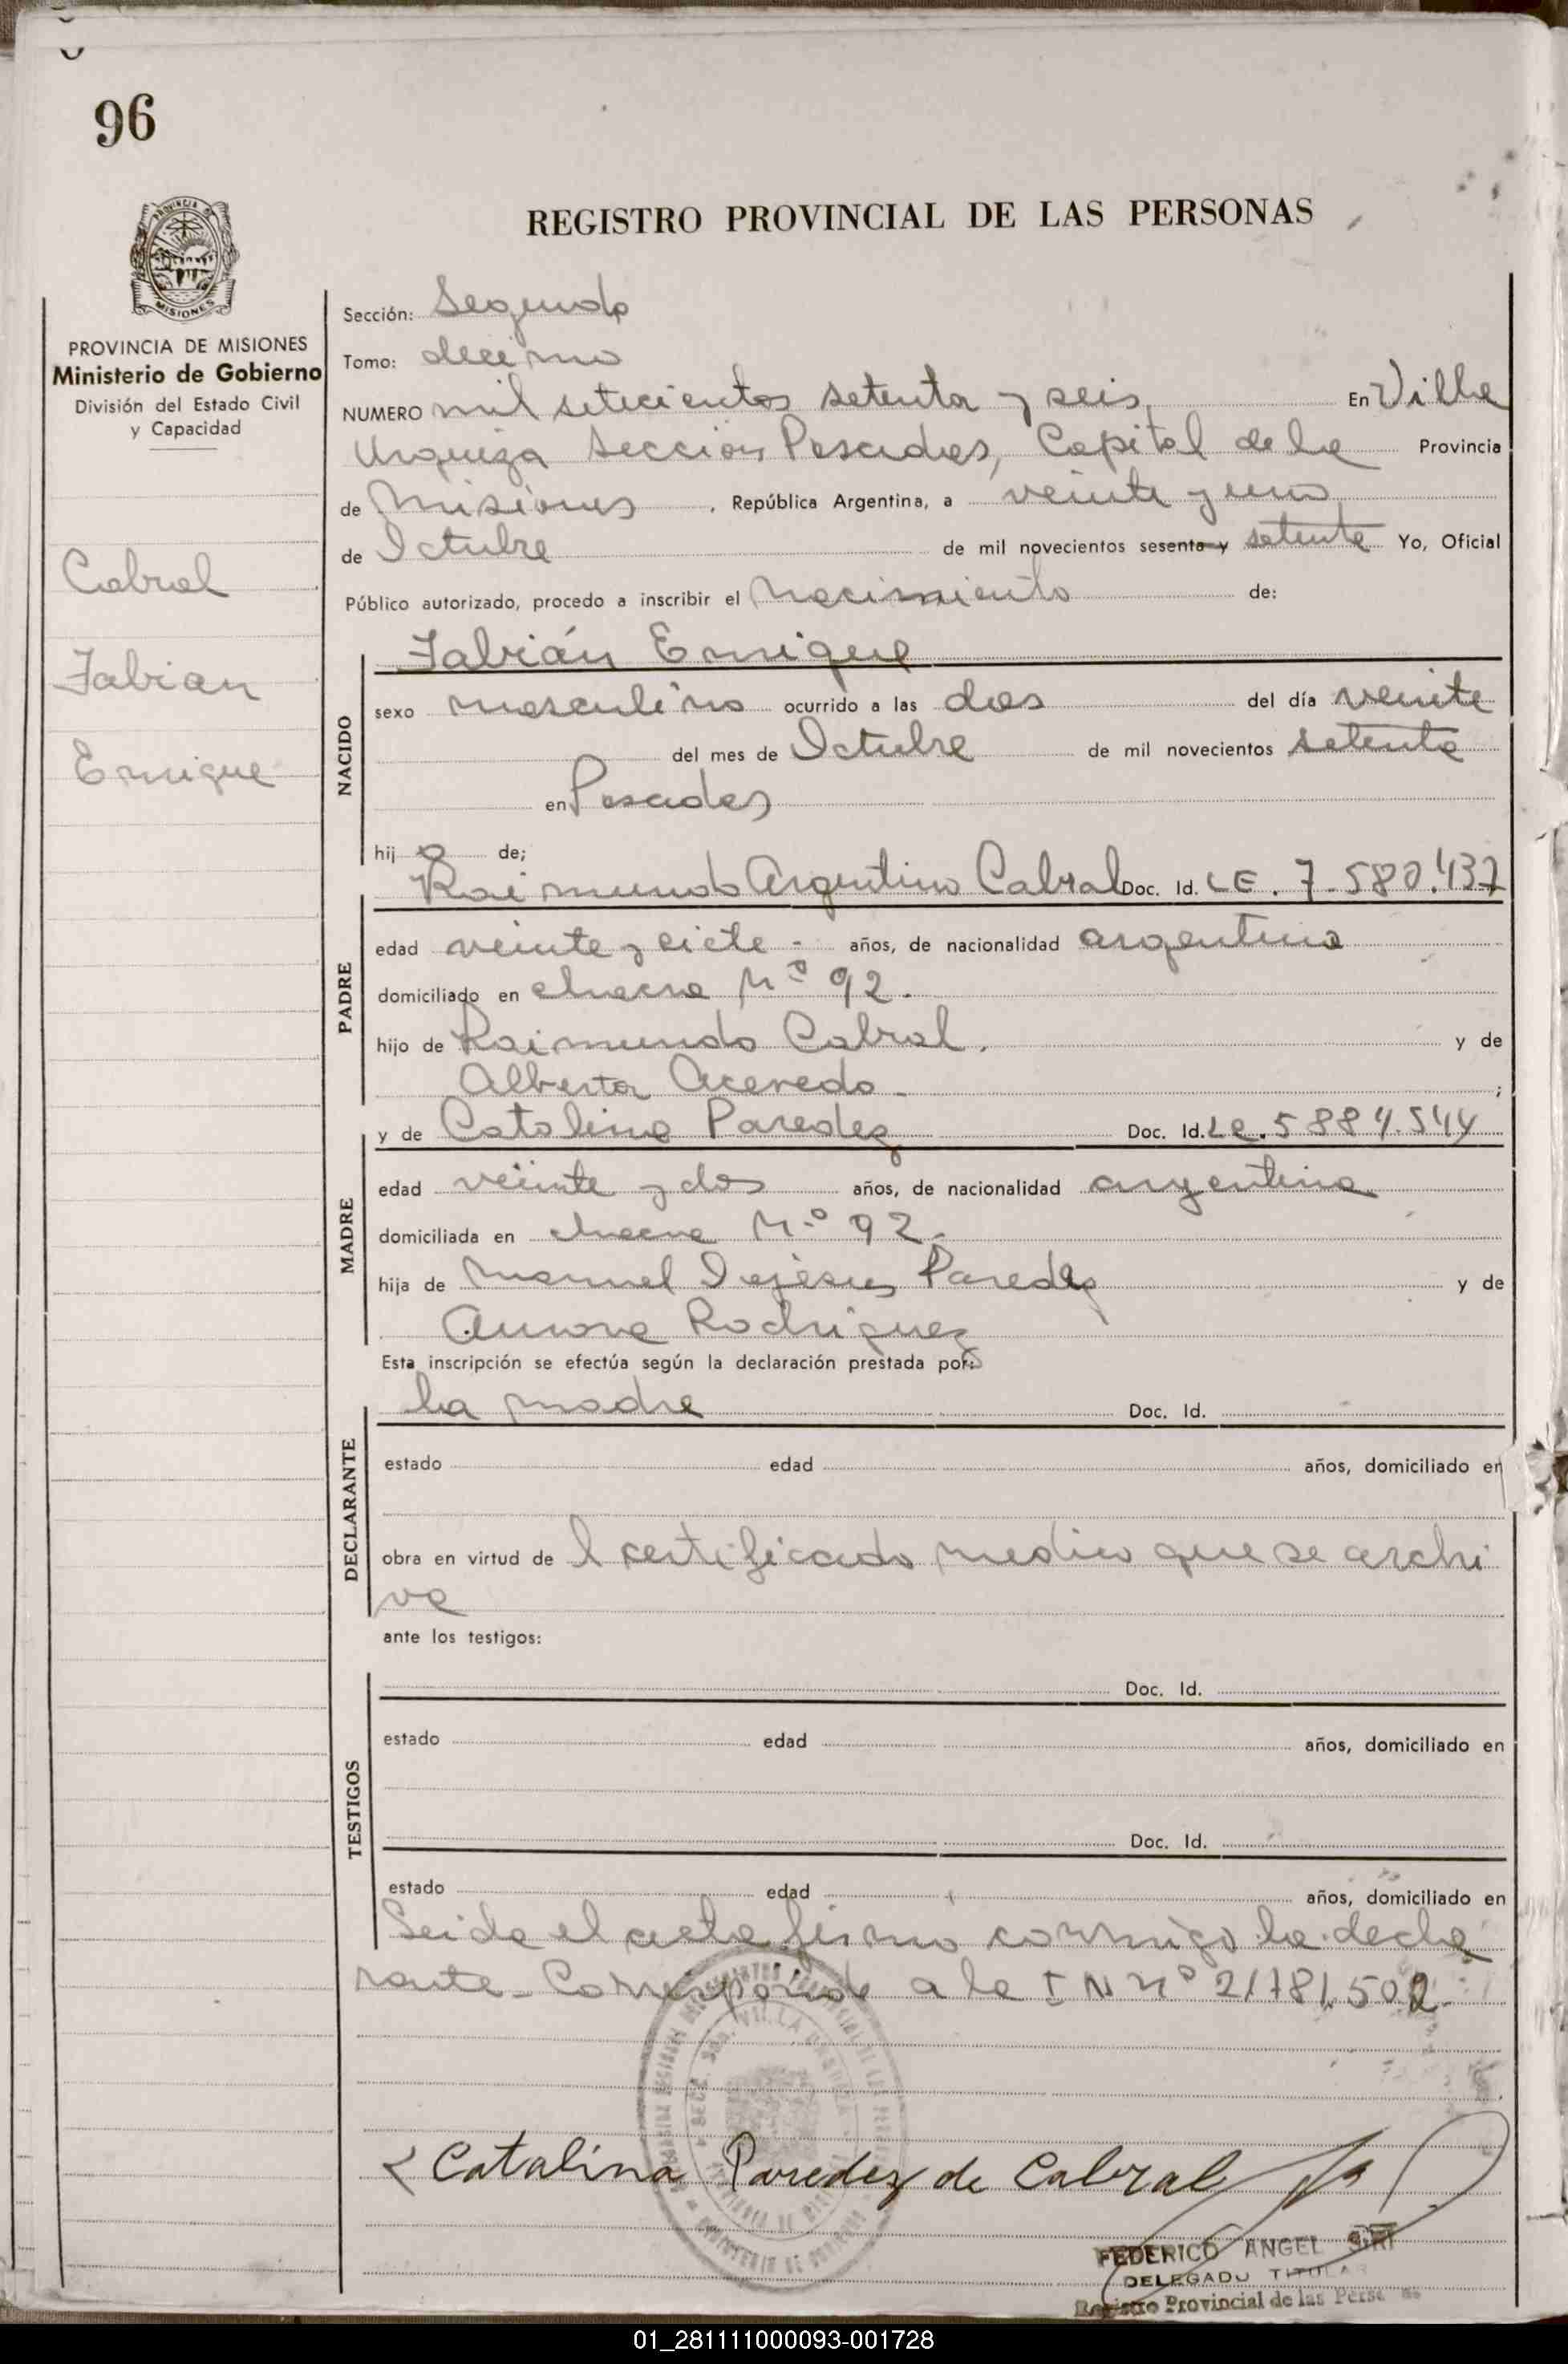 96
REGISTRO PROVINCIAL DE LAS PERSONAS
PROVINCIA DE MISIONES
MISIONES
PROVINCIA DE MISIONES
Ministerio de Gobierno
División del Estado Civil
y Capacidad
Cabral
Fabian
Enrique
Sección: Segunda
Tomo: decimo
NUMERO mil setecientos setenta y seis En Villa
Urquiza Sección Posadas, Capital de la Provincia
de Misiones, República Argentina, a veinte y uno
de Octubre de mil novecientos sesenta y setenta Yo, Oficial
Público autorizado, procedo a inscribir el nacimiento de:
Fabián Enrique
NACIDO
sexo masculino ocurrido a las dos del día veinte
del mes de Octubre de mil novecientos setenta
en Posadas
hijo de;
Raimundo Argentino Cabral Doc. Id. LE. 7.580.437
PADRE
edad veinte y siete - años, de nacionalidad argentina
domiciliado en chacra Nº 92.
hijo de Raimundo Cabral. y de
Alberta Acevedo ;
y de Catalina Paredez Doc. Id. Lc.
MADRE
edad veinte y dos años, de nacionalidad argentina
domiciliada en chacra Nº 92.
hija de Manuel Paredez y de
Aurora Rodriguez
Esta inscripción se efectúa según la declaración prestada por:
la madre Doc. Id.
DECLARANTE
estado edad años, domiciliado en
obra en virtud de l certificado medico que se archi
va
ante los testigos:
TESTIGOS
Doc. Id.
estado edad años, domiciliado en
Doc. Id.
estado edad años, domiciliado en
Leida el acta firmó conmigo la decla
rante. Corresponde a la I N nº 21781.502.
Catalina Paredez de Cabral
FEDERICO ANGEL
DELEGADO TITULAR
Registro Provincial de las Personas
01_281111000093-001728